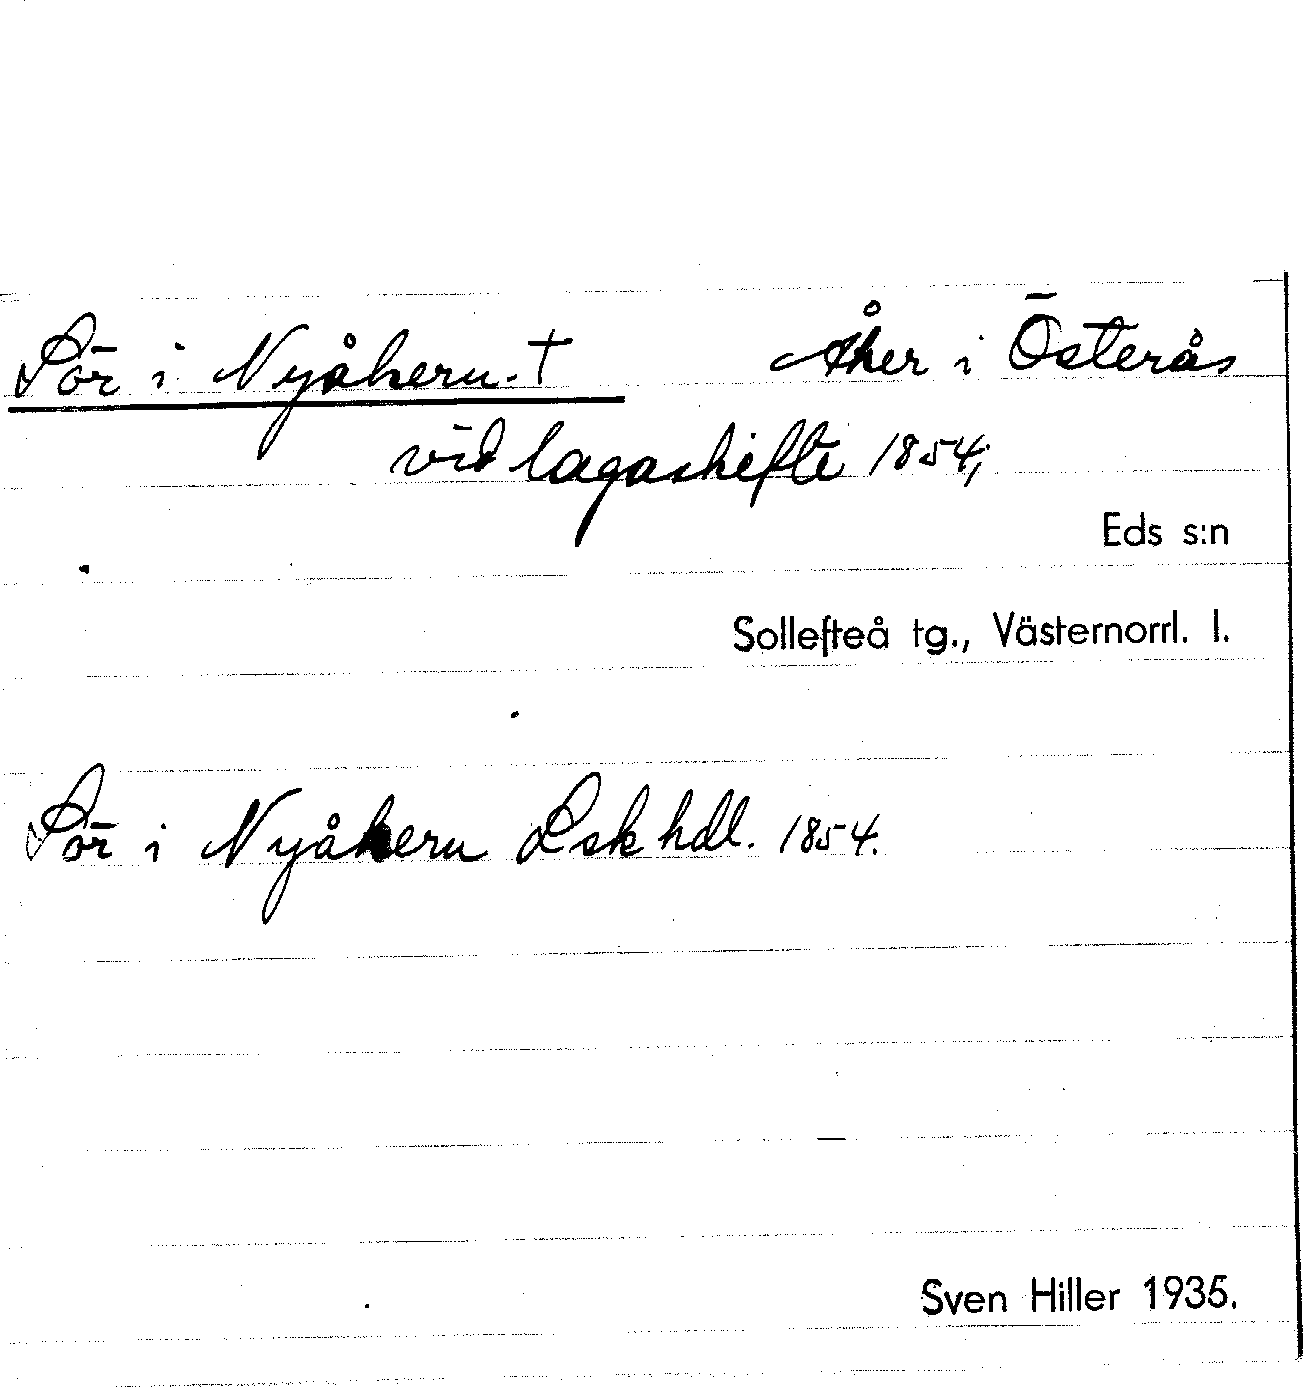 Sör i Nyåkern. † Åker i Österås
vid lagaskifte 1854;
Eds s:n
Sollefteå tg., Västernorrl. l.
Sör i Nyåkern Lsk hdl. 1854.
Sven Hiller 1935.